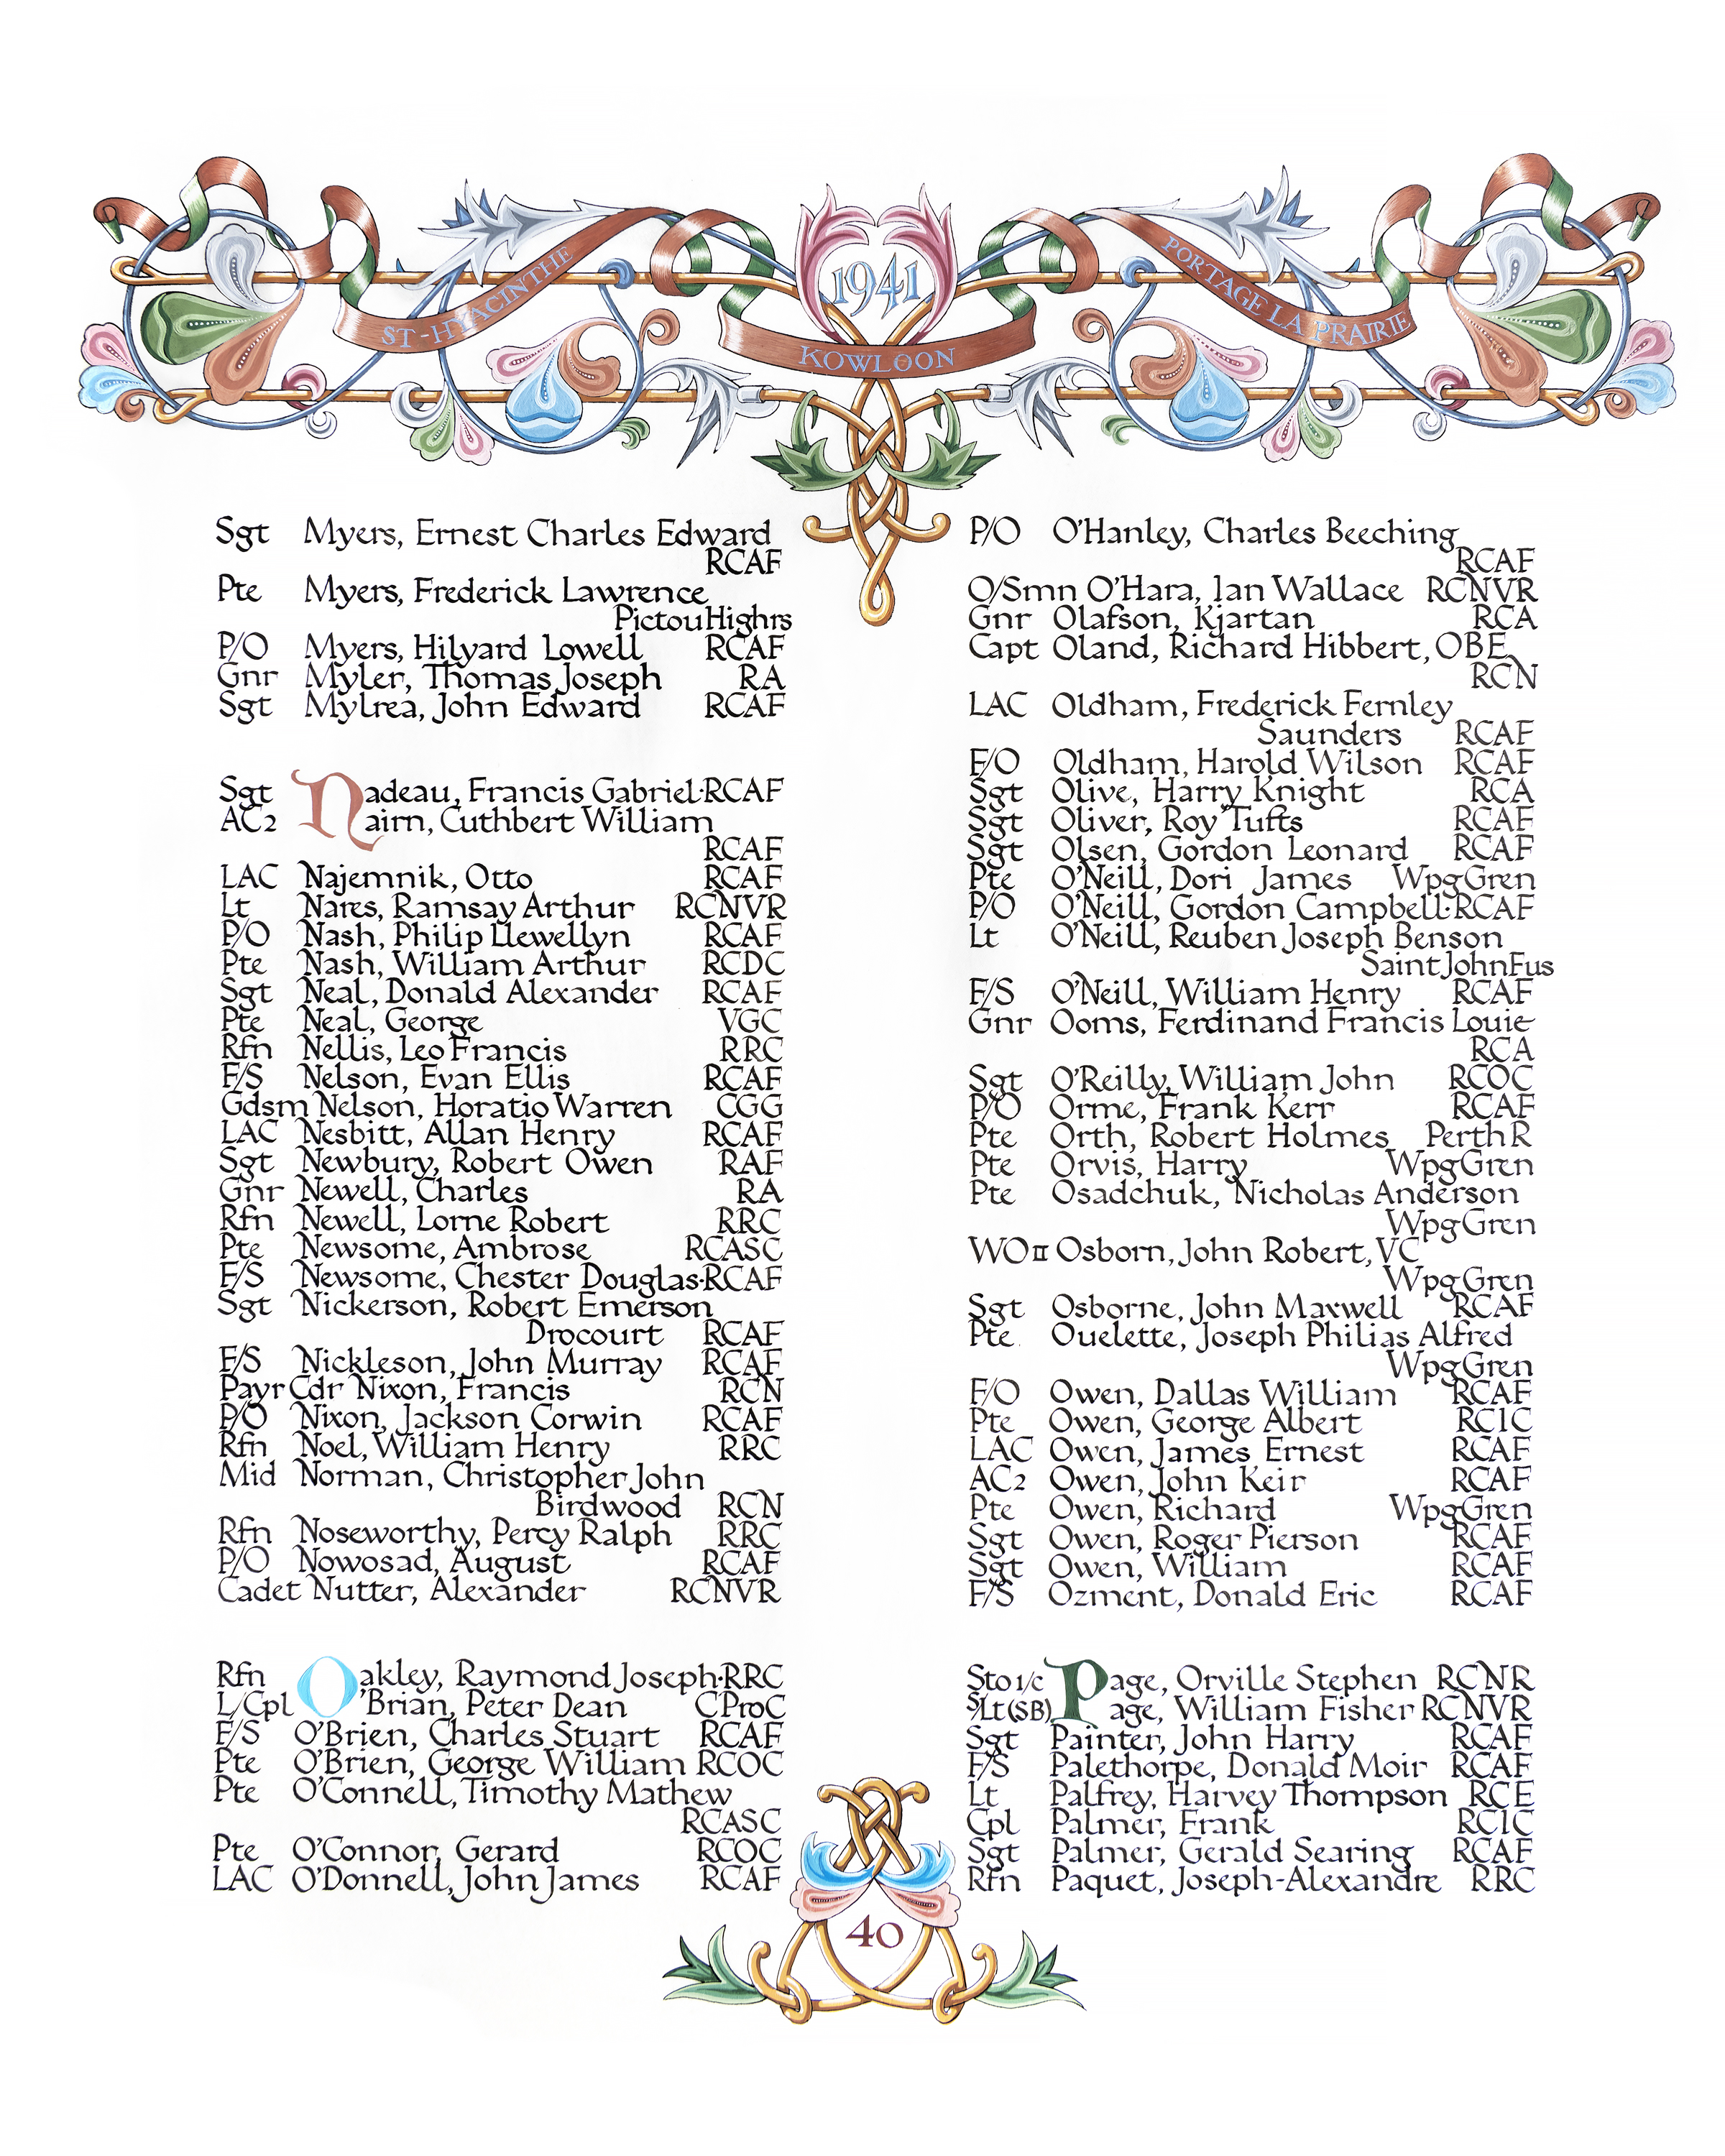 1941
ST-HYACINTHE
KOWLOON
PORTAGE LA PRAIRIE
Sgt Myers, Ernest Charles Edward
RCAF
Pte Myers, Frederick Lawrence
Pictou Highrs
P/O Myers, Hilyard Lowell RCAF
Gnr Myler, Thomas Joseph RA
Sgt Mylrea, John Edward RCAF
Sgt Nadeau, Francis Gabriel·RCAF
AC2 Nairn, Cuthbert William
RCAF
LAC Najemnik, Otto RCAF
Lt Nares, Ramsay Arthur RCNVR
P/O Nash, Philip Llewellyn RCAF
Pte Nash, William Arthur RCDC
Sgt Neal, Donald Alexander RCAF
Pte Neal, George VGC
Rfn Nellis, Leo Francis RRC
F/S Nelson, Evan Ellis RCAF
Gdsm Nelson, Horatio Warren CGG
LAC Nesbitt, Allan Henry RCAF
Sgt Newbury, Robert Owen RAF
Gnr Newell, Charles RA
Rfn Newell, Lorne Robert RRC
Pte Newsome, Ambrose RCASC
F/S Newsome, Chester Douglas·RCAF
Sgt Nickerson, Robert Emerson
Drocourt RCAF
F/S Nickleson, John Murray RCAF
Payr Cdr Nixon, Francis RCN
P/O Nixon, Jackson Corwin RCAF
Rfn Noel, William Henry RRC
Mid Norman, Christopher John
Birdwood RCN
Rfn Noseworthy, Percy Ralph RRC
P/O Nowosad, August RCAF
Cadet Nutter, Alexander RCNVR
Rfn Oakley, Raymond Joseph·RRC
L/Cpl O'Brian, Peter Dean CProC
F/S O'Brien, Charles Stuart RCAF
Pte O'Brien, George William RCOC
Pte O'Connell, Timothy Mathew
RCASC
Pte O'Connor, Gerard RCOC
LAC O'Donnell, John James RCAF
P/O O'Hanley, Charles Beeching
RCAF
O/Smn O'Hara, Ian Wallace RCNVR
Gnr Olafson, Kjartan RCA
Capt Oland, Richard Hibbert, OBE
RCN
LAC Oldham, Frederick Fernley
Saunders RCAF
F/O Oldham, Harold Wilson RCAF
Sgt Olive, Harry Knight RCA
Sgt Oliver, Roy Tufts RCAF
Sgt Olsen, Gordon Leonard RCAF
Pte O'Neill, Dori James Wpg Gren
P/O O'Neill, Gordon Campbell·RCAF
Lt O'Neill, Reuben Joseph Benson
Saint John Fus
F/S O'Neill, William Henry RCAF
Gnr Ooms, Ferdinand Francis Louie
RCA
Sgt O'Reilly, William John RCOC
P/O Orme, Frank Kerr RCAF
Pte Orth, Robert Holmes Perth R
Pte Orvis, Harry Wpg Gren
Pte Osadchuk, Nicholas Anderson
Wpg Gren
WO II Osborn, John Robert, VC
Wpg Gren
Sgt Osborne, John Maxwell RCAF
Pte Ouelette, Joseph Philias Alfred
Wpg Gren
F/O Owen, Dallas William RCAF
Pte Owen, George Albert RCIC
LAC Owen, James Ernest RCAF
AC2 Owen, John Keir RCAF
Pte Owen, Richard Wpg Gren
Sgt Owen, Roger Pierson RCAF
Sgt Owen, William RCAF
F/S Ozment, Donald Eric RCAF
Sto 1/c Page, Orville Stephen RCNR
S/Lt (SB) Page, William Fisher RCNVR
Sgt Painter, John Harry RCAF
F/S Palethorpe, Donald Moir RCAF
Lt Palfrey, Harvey Thompson RCE
Cpl Palmer, Frank RCIC
Sgt Palmer, Gerald Searing RCAF
Rfn Paquet, Joseph-Alexandre RRC
40